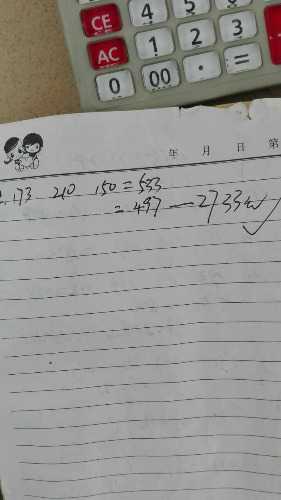 4 5 6
CE
1 2 3
AC
0 00 · =
年 月 日 第
173 210 150 = 533
= 497 — 2733